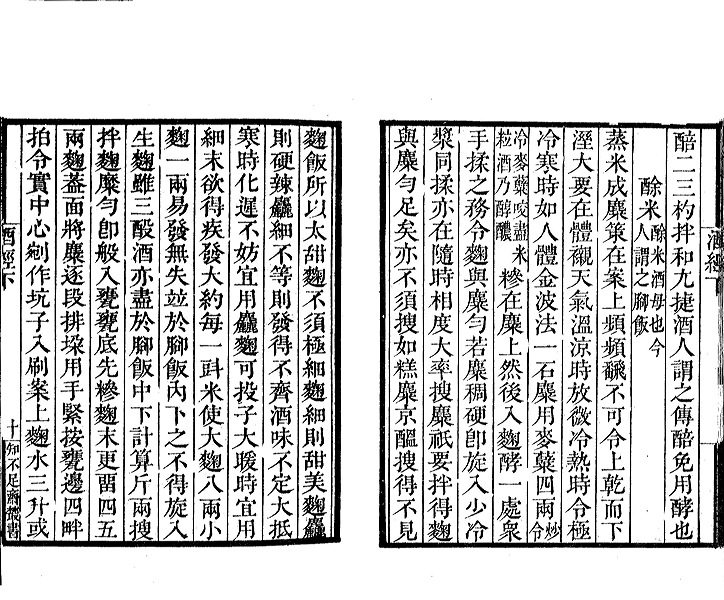 醅二三杓拌和尤捷酒人謂之傳醅免用酵也
酴米酴米酒母也今人謂之腳飯
蒸米成糜策在案上頻頻翻不可令上乾而下
溼大要在體襯天氣溫涼時放微冷熱時令極
冷寒時如人體金波法一石糜用麥糵四兩炒令
冷麥糵咬盡米粒酒乃醇醲糝在糜上然後入麴酵一處衆
手揉之務令麴與糜勻若糜稠硬卽旋入少冷
漿同揉亦在隨時相度大率搜糜祇要拌得麴
與糜勻足矣亦不須搜如糕糜京醞搜得不見
酒經下
麴飯所以太甜麴不須極細麴細則甜美麴麤
則硬辣麤細不等則發得不齊酒味不定大抵
寒時化遲不妨宜用麤麴可投子大暖時宜用
細末欲得疾發大約每一㪷米使大麴八兩小
麴一兩易發無失並於腳飯內下之不得旋入
生麴雖三酘酒亦盡於腳飯中下計算斤兩搜
拌麴糜勻卽般入甕甕底先糝麴末更留四五
兩麴蓋面將糜逐段排垛用手緊按甕邊四畔
拍令實中心剜作坑子入刷案上麴水三升或
酒經下
十
知不足齋叢書